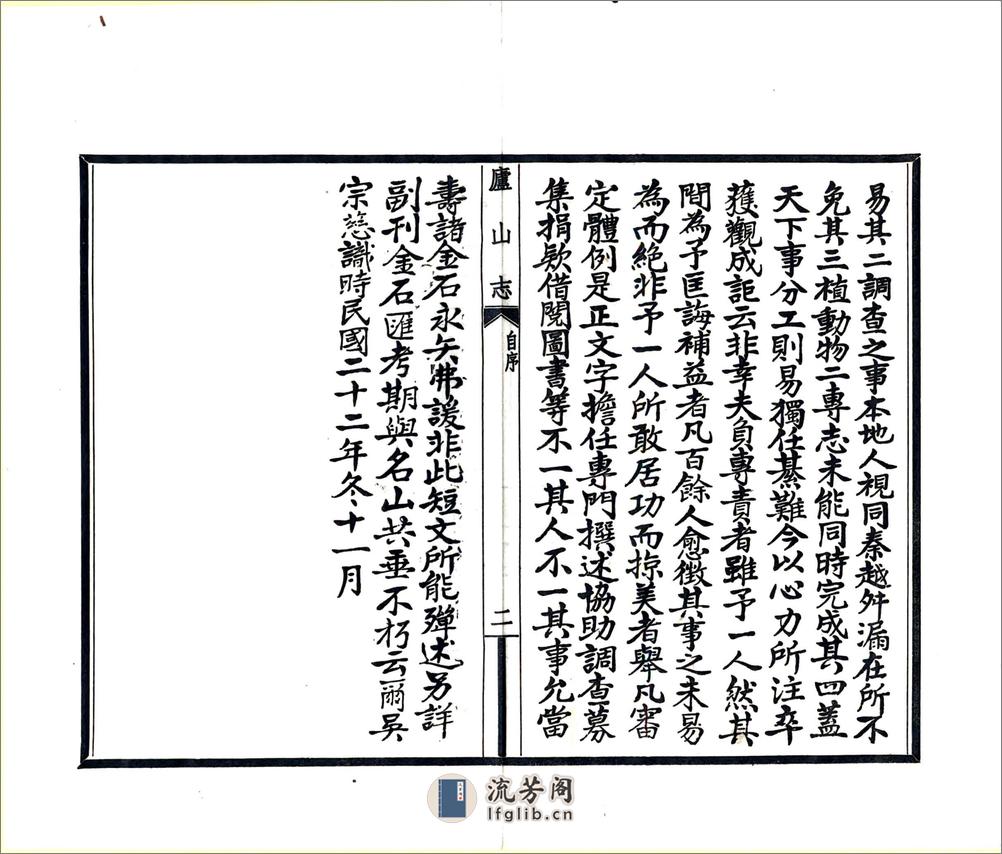 易其二調查之事本地人視同秦越舛漏在所不
免其三植動物二專志未能同時完成其四蓋
天下事分工則易獨任綦難今以心力所注卒
獲觀成詎云非幸夫負專責者雖予一人然其
間為予匡誨補益者凡百餘人愈徵其事之未易
為而絕非予一人所敢居功而掠美者舉凡審
定體例是正文字擔任專門撰述協助調查募
集捐欵借閱圖書等不一其人不一其事允當
廬山志
自序
二
壽諸金石永矢弗諼非此短文所能殫述另詳
副刊金石匯考期與名山共垂不朽云爾吳
宗慈識時民國二十二年冬十一月
流芳阁
lfglib.cn